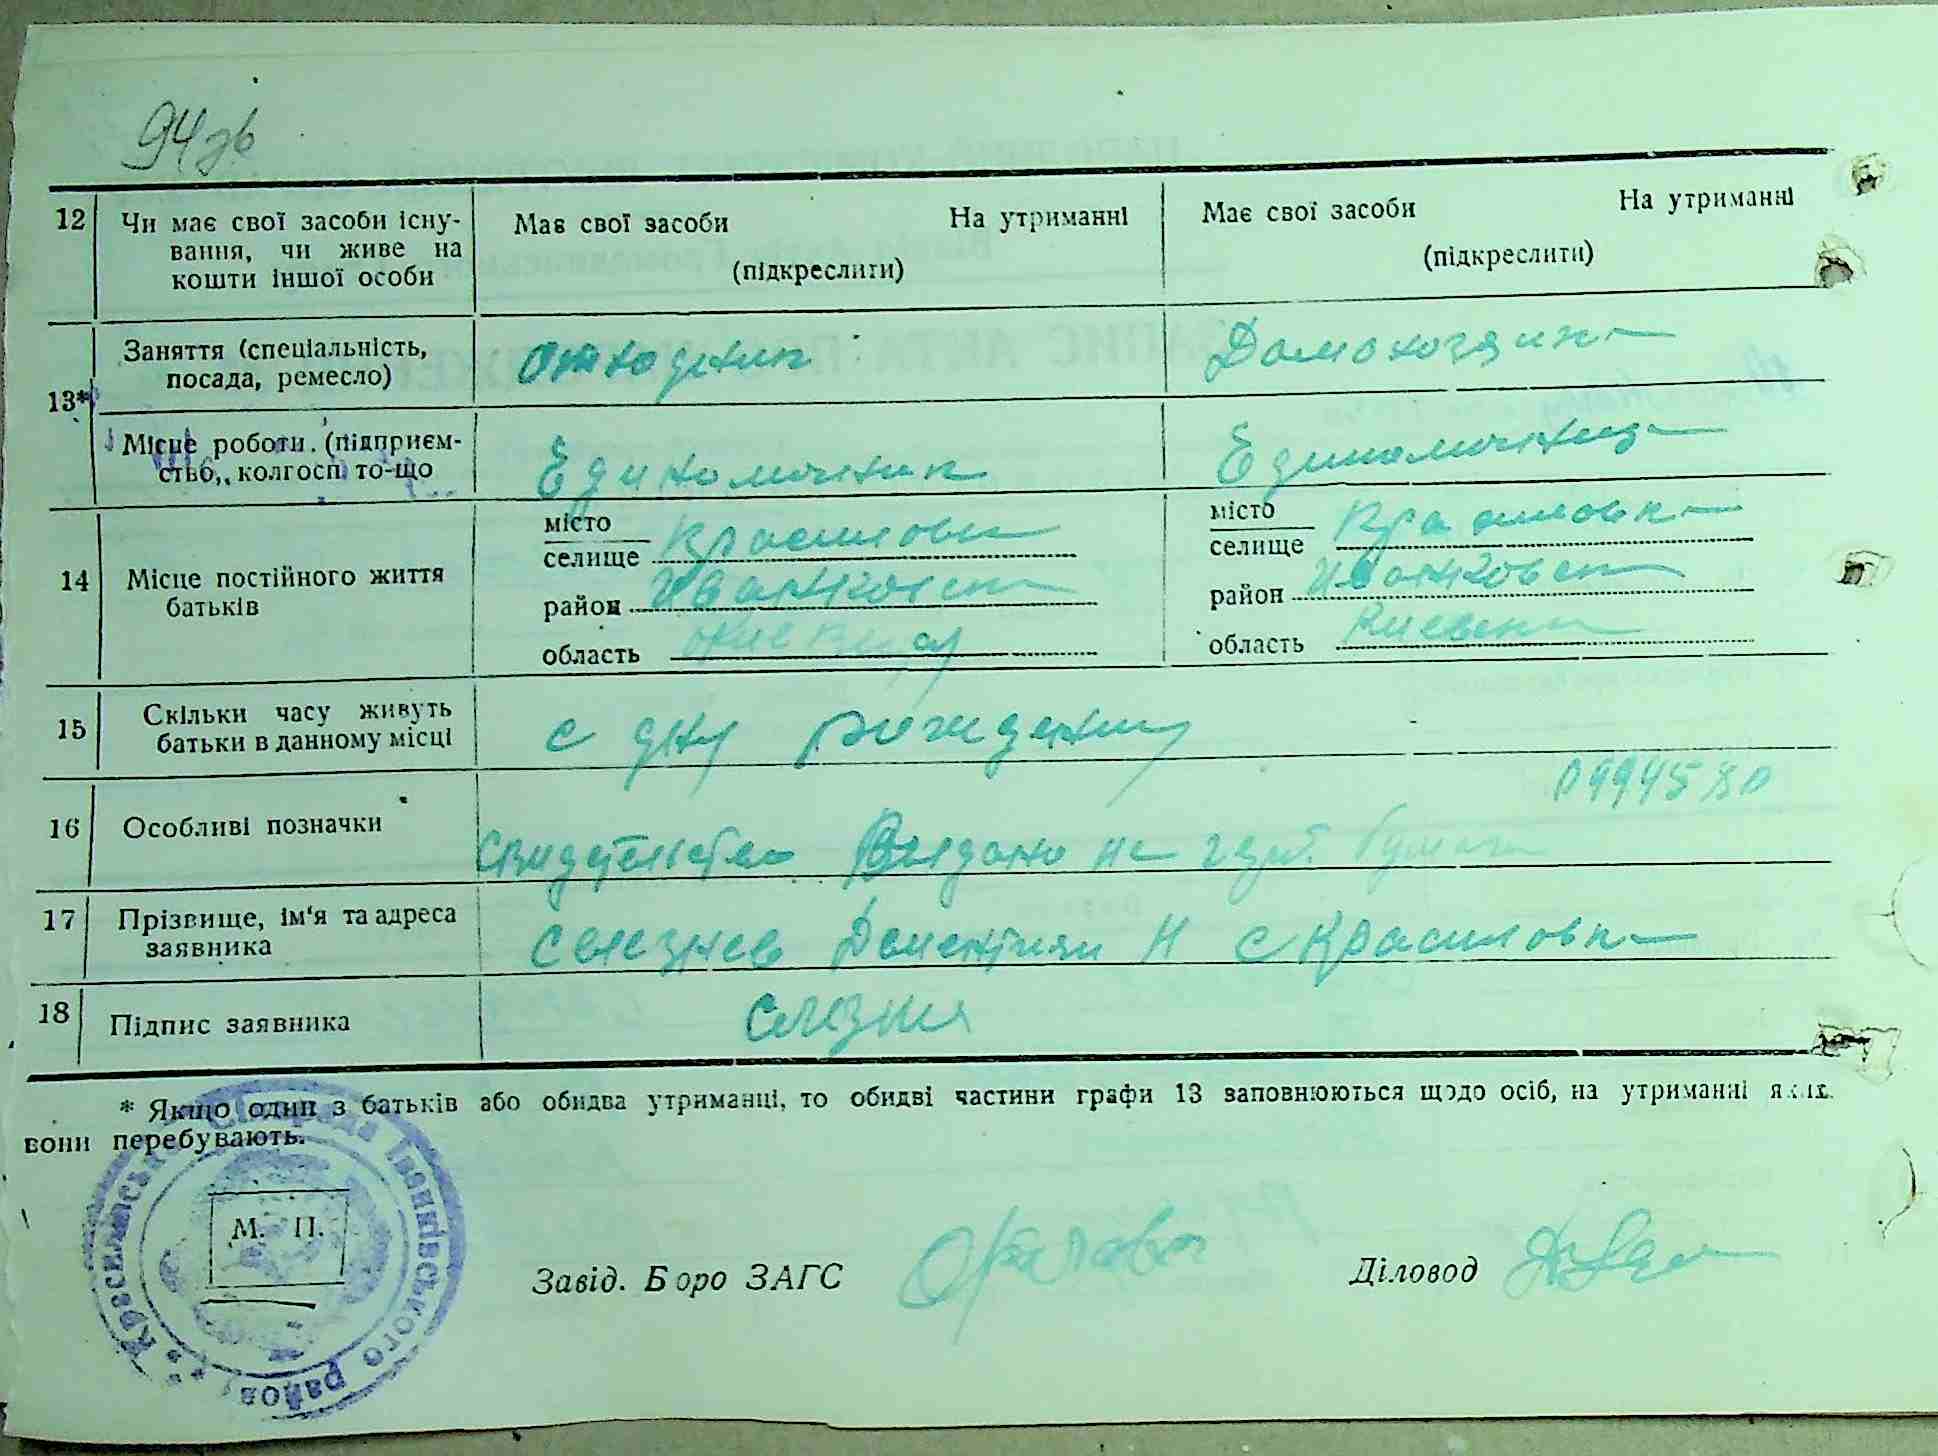 94 зв
12 Чи має свої засоби існу- Має свої засоби На утриманні Має свої засоби На утриманні
вання, чи живе на (підкреслити) (підкреслити)
кошти іншої особи
13* Заняття (спеціальність, отходник Домохозяйка
посада, ремесло)
Місце роботи (підприєм- Единоличник Единоличница
ство, колгосп то-що
14 Місце постійного життя місто Красиловка місто Красиловка
батьків селище селище
район Иванковск район Иванковск
область Киевск область Киевская
15 Скільки часу живуть с дня рождения
батьки в данному місці
16 Особливі позначки
Свидетельство Выдано на герб. бумаге
17 Прізвище, ім'я та адреса Селезнев Н с Красиловка
заявника
18 Підпис заявника
* Якщо один з батьків або обидва утриманці, то обидві частини графи 13 заповнюються щодо осіб, на утриманні яких
вони перебувають.
Красилівська Сільрада Іванківського району
М. П.
Завід. Бюро ЗАГС Діловод